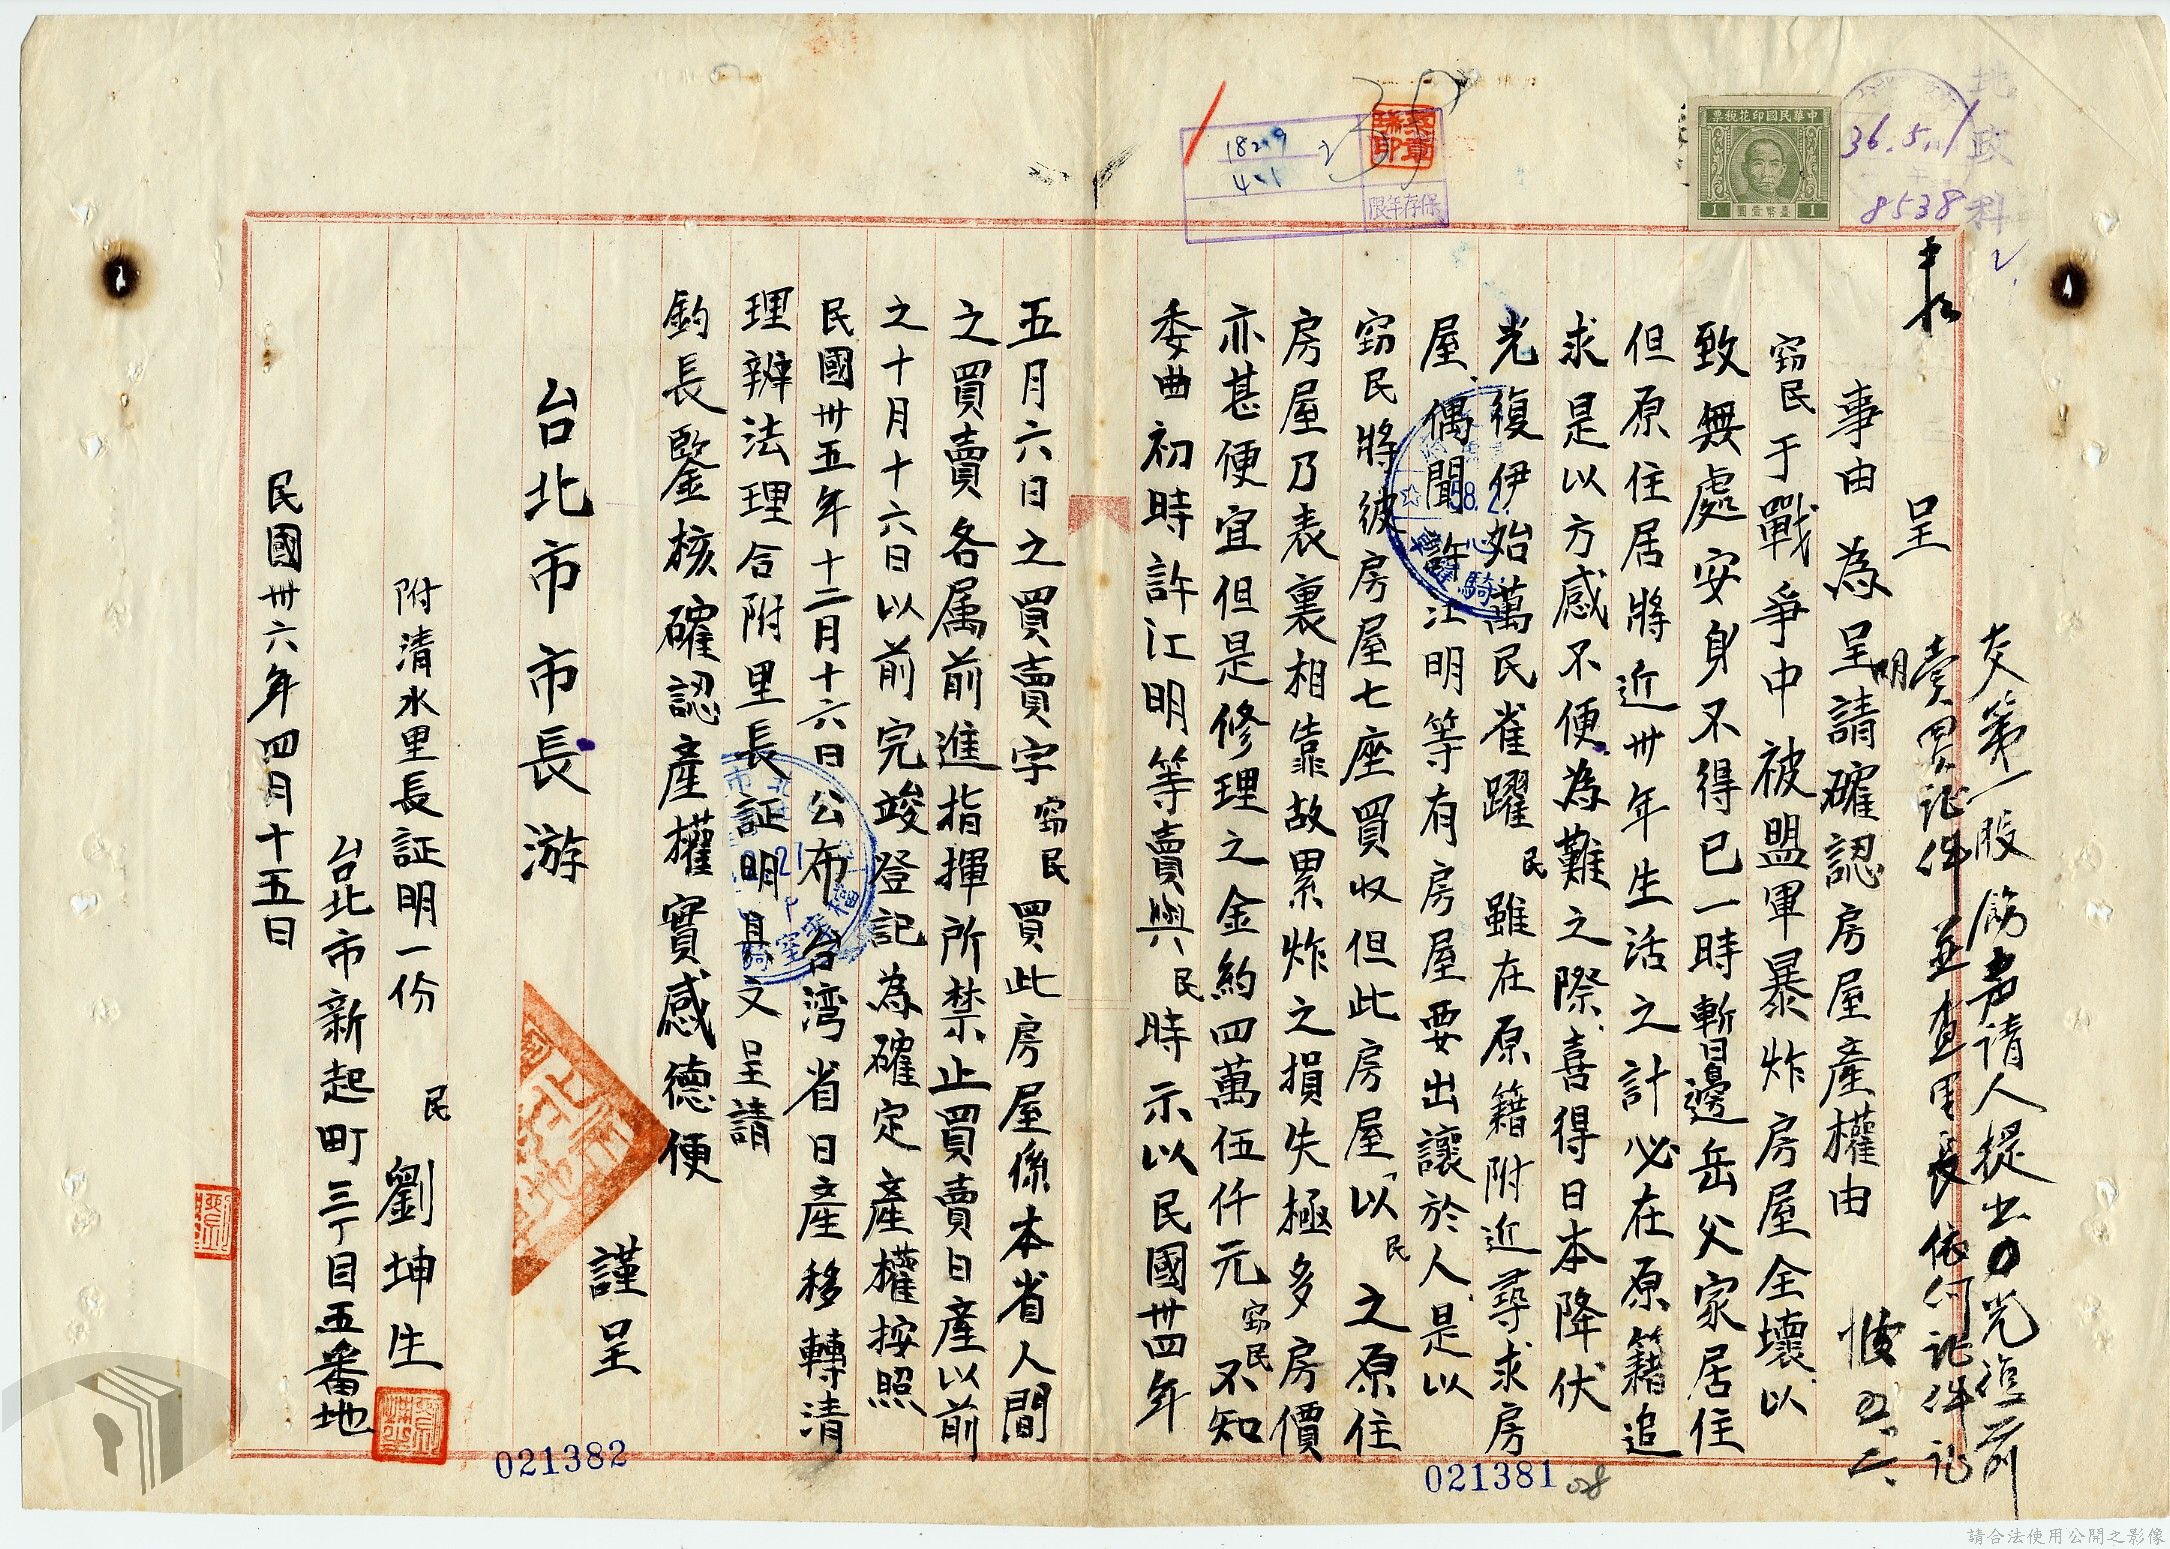 地政科
36.5.1
8538
中華民國印花稅票
臺幣壹圓
1
1
保存年限
呈
交第一股 飭聲請人提出光復前
賣買証件並查里長依何証件証
明
事由 為呈請確認房屋產權由
竊民于戰爭中被盟軍暴炸房屋全壞以
致無處安身不得已一時暫邊岳父家居住
但原住居將近卅年生活之計必在原籍追
求是以方感不便為難之際喜得日本降伏
光復伊始萬民雀躍民雖在原籍附近尋求房
屋偶聞許江明等有房屋要出讓於人是以
竊民將彼房屋七座買收但此房屋「以民之原住
房屋乃表裏相靠故累炸之損失極多房價
亦甚便宜但是修理之金約四萬伍仟元竊民不知
委曲初時許江明等賣與民時示以民國卅四年
五月六日之買賣字竊民買此房屋係本省人間
之買賣各属前進指揮所禁止買賣日產以前
之十月十六日以前完竣登記為確定產權按照
民國卅五年十二月十六日公布台湾省日產移轉清
理辦法理合附里長証明具文呈請
鈞長鑒核確認產權實感德便
謹呈
台北市市長游
附清水里長証明一份
民 劉坤生
台北市新起町三丁目五番地
民國卅六年四月十五日
021382
021381
請合法使用公開之影像